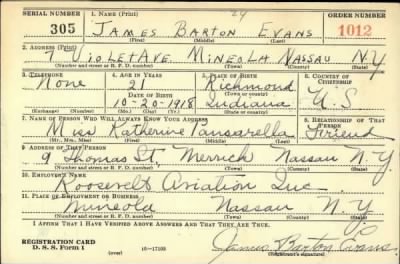 SERIAL NUMBER 1. NAME (Print) 24 ORDER NUMBER
305 JAMES BARTON EVANS 1012
(First) (Middle) (Last)
2. ADDRESS (Print)
7 VIOLET AVE. MINEOLA NASSAU N.Y.
(Number and street or R. F. D. number) (Town) (County) (State)
3. TELEPHONE 4. AGE IN YEARS 5. PLACE OF BIRTH 6. COUNTRY OF CITIZENSHIP
None 21 Richmond
DATE OF BIRTH (Town or county)
10-20-1918 Indiana U.S.
(Exchange) (Number) (Mo.) (Day) (Yr.) (State or country)
7. NAME OF PERSON WHO WILL ALWAYS KNOW YOUR ADDRESS 8. RELATIONSHIP OF THAT PERSON
Miss Katherine Pansarella Friend
(Mr., Mrs., Miss) (First) (Middle) (Last)
9. ADDRESS OF THAT PERSON
9 Thomas St. Merrick Nassau N.Y.
(Number and street or R. F. D. number) (Town) (County) (State)
10. EMPLOYER'S NAME
Roosevelt Aviation Inc.
11. PLACE OF EMPLOYMENT OR BUSINESS
Mineola Nassau N.Y.
(Number and street or R. F. D. number) (Town) (County) (State)
I AFFIRM THAT I HAVE VERIFIED ABOVE ANSWERS AND THAT THEY ARE TRUE.
REGISTRATION CARD
D. S. S. Form 1 (over) 16-17105 James Barton Evans
(Registrant's signature)